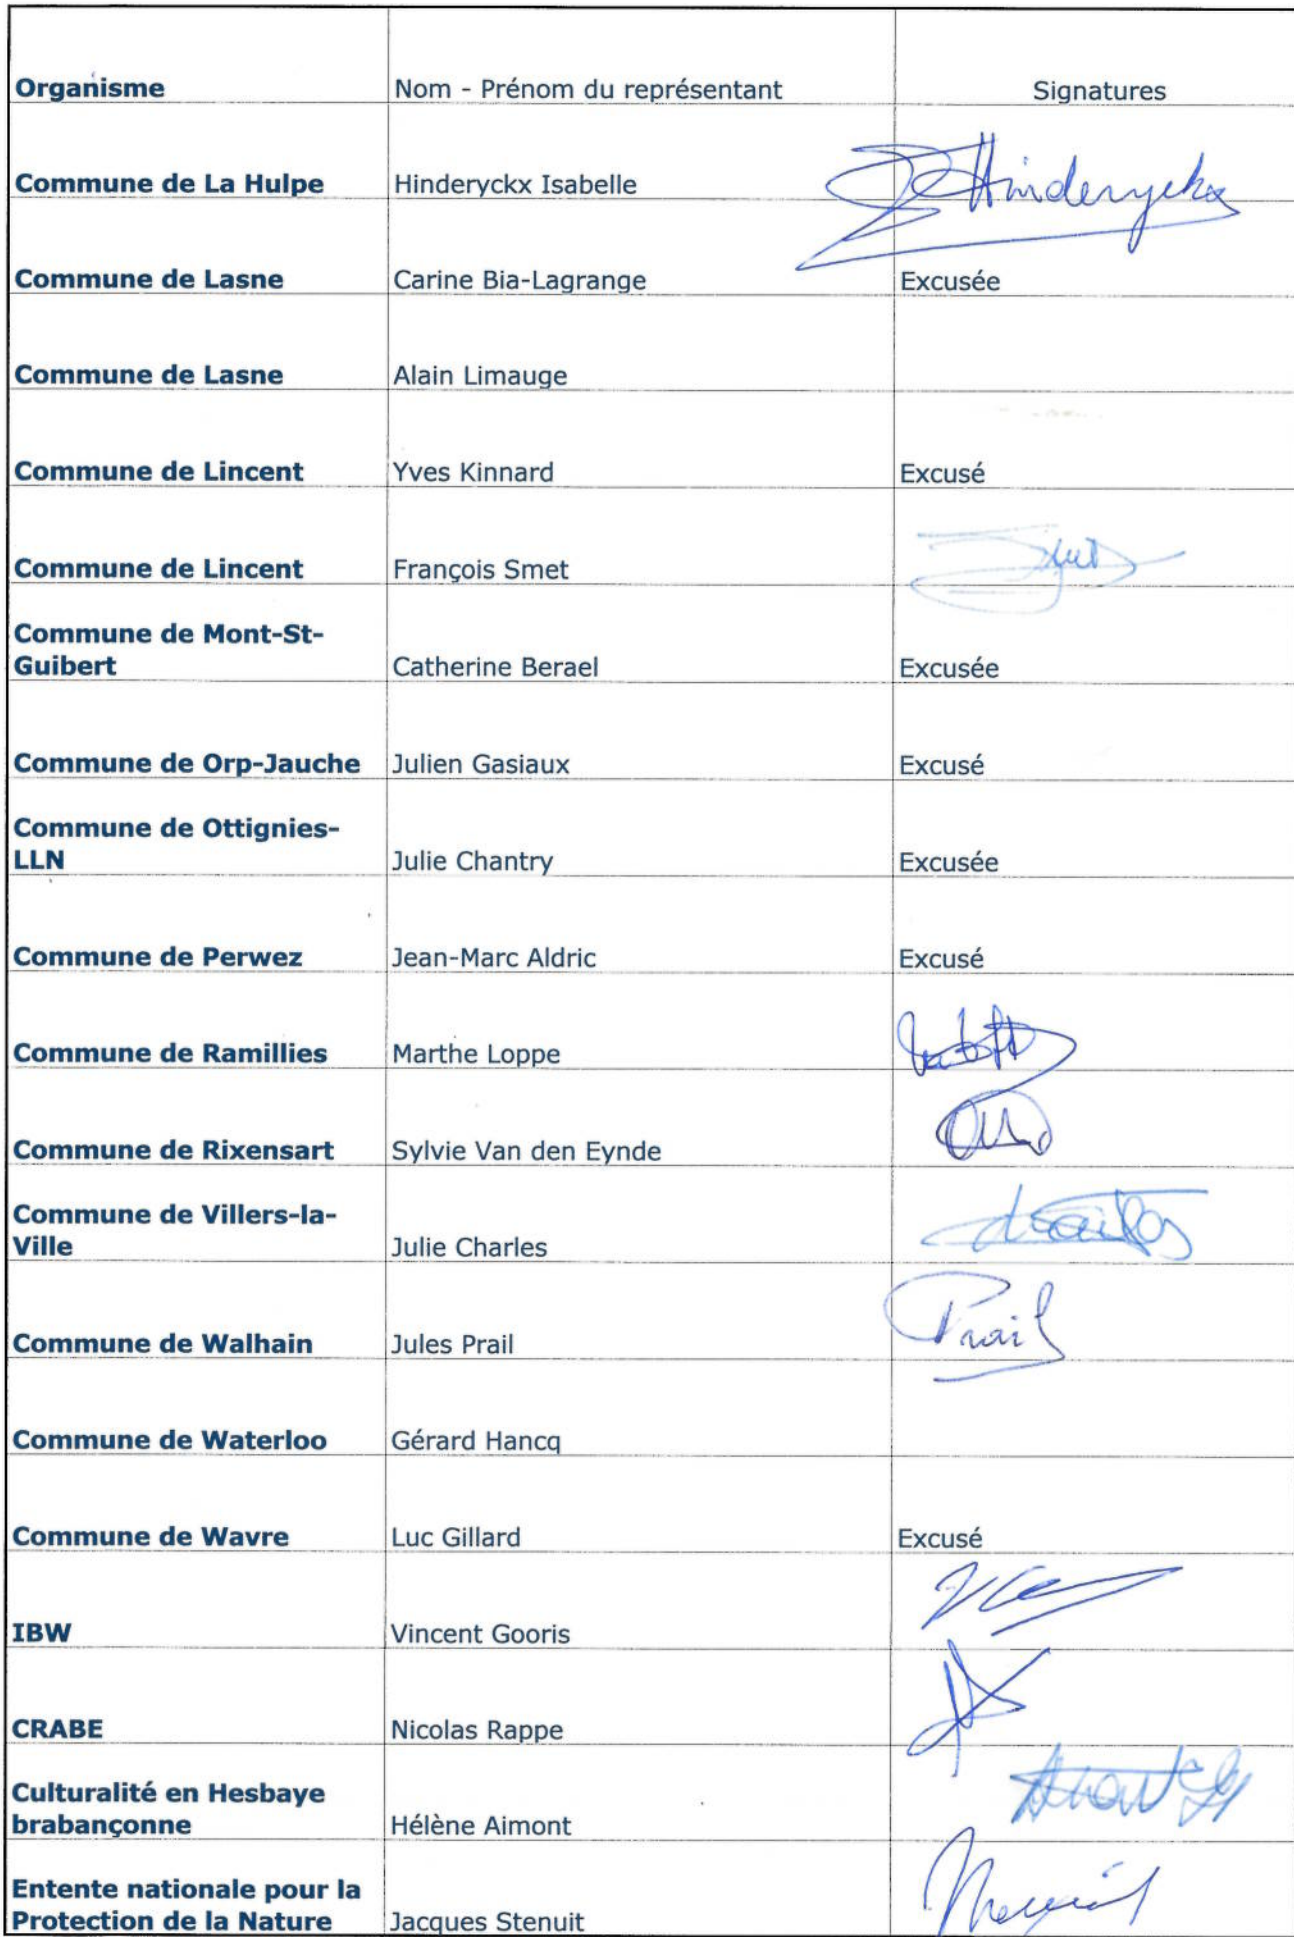 Organisme Nom - Prénom du représentant Signatures
Commune de La Hulpe Hinderyckx Isabelle Hinderyckx
Commune de Lasne Carine Bia-Lagrange Excusée
Commune de Lasne Alain Limauge
Commune de Lincent Yves Kinnard Excusé
Commune de Lincent François Smet
Commune de Mont-St-
Guibert Catherine Berael Excusée
Commune de Orp-Jauche Julien Gasiaux Excusé
Commune de Ottignies-
LLN Julie Chantry Excusée
Commune de Perwez Jean-Marc Aldric Excusé
Commune de Ramillies Marthe Loppe
Commune de Rixensart Sylvie Van den Eynde
Commune de Villers-la-
Ville Julie Charles
Commune de Walhain Jules Prail Prail
Commune de Waterloo Gérard Hancq
Commune de Wavre Luc Gillard Excusé
IBW Vincent Gooris
CRABE Nicolas Rappe
Culturalité en Hesbaye
brabançonne Hélène Aimont
Entente nationale pour la
Protection de la Nature Jacques Stenuit